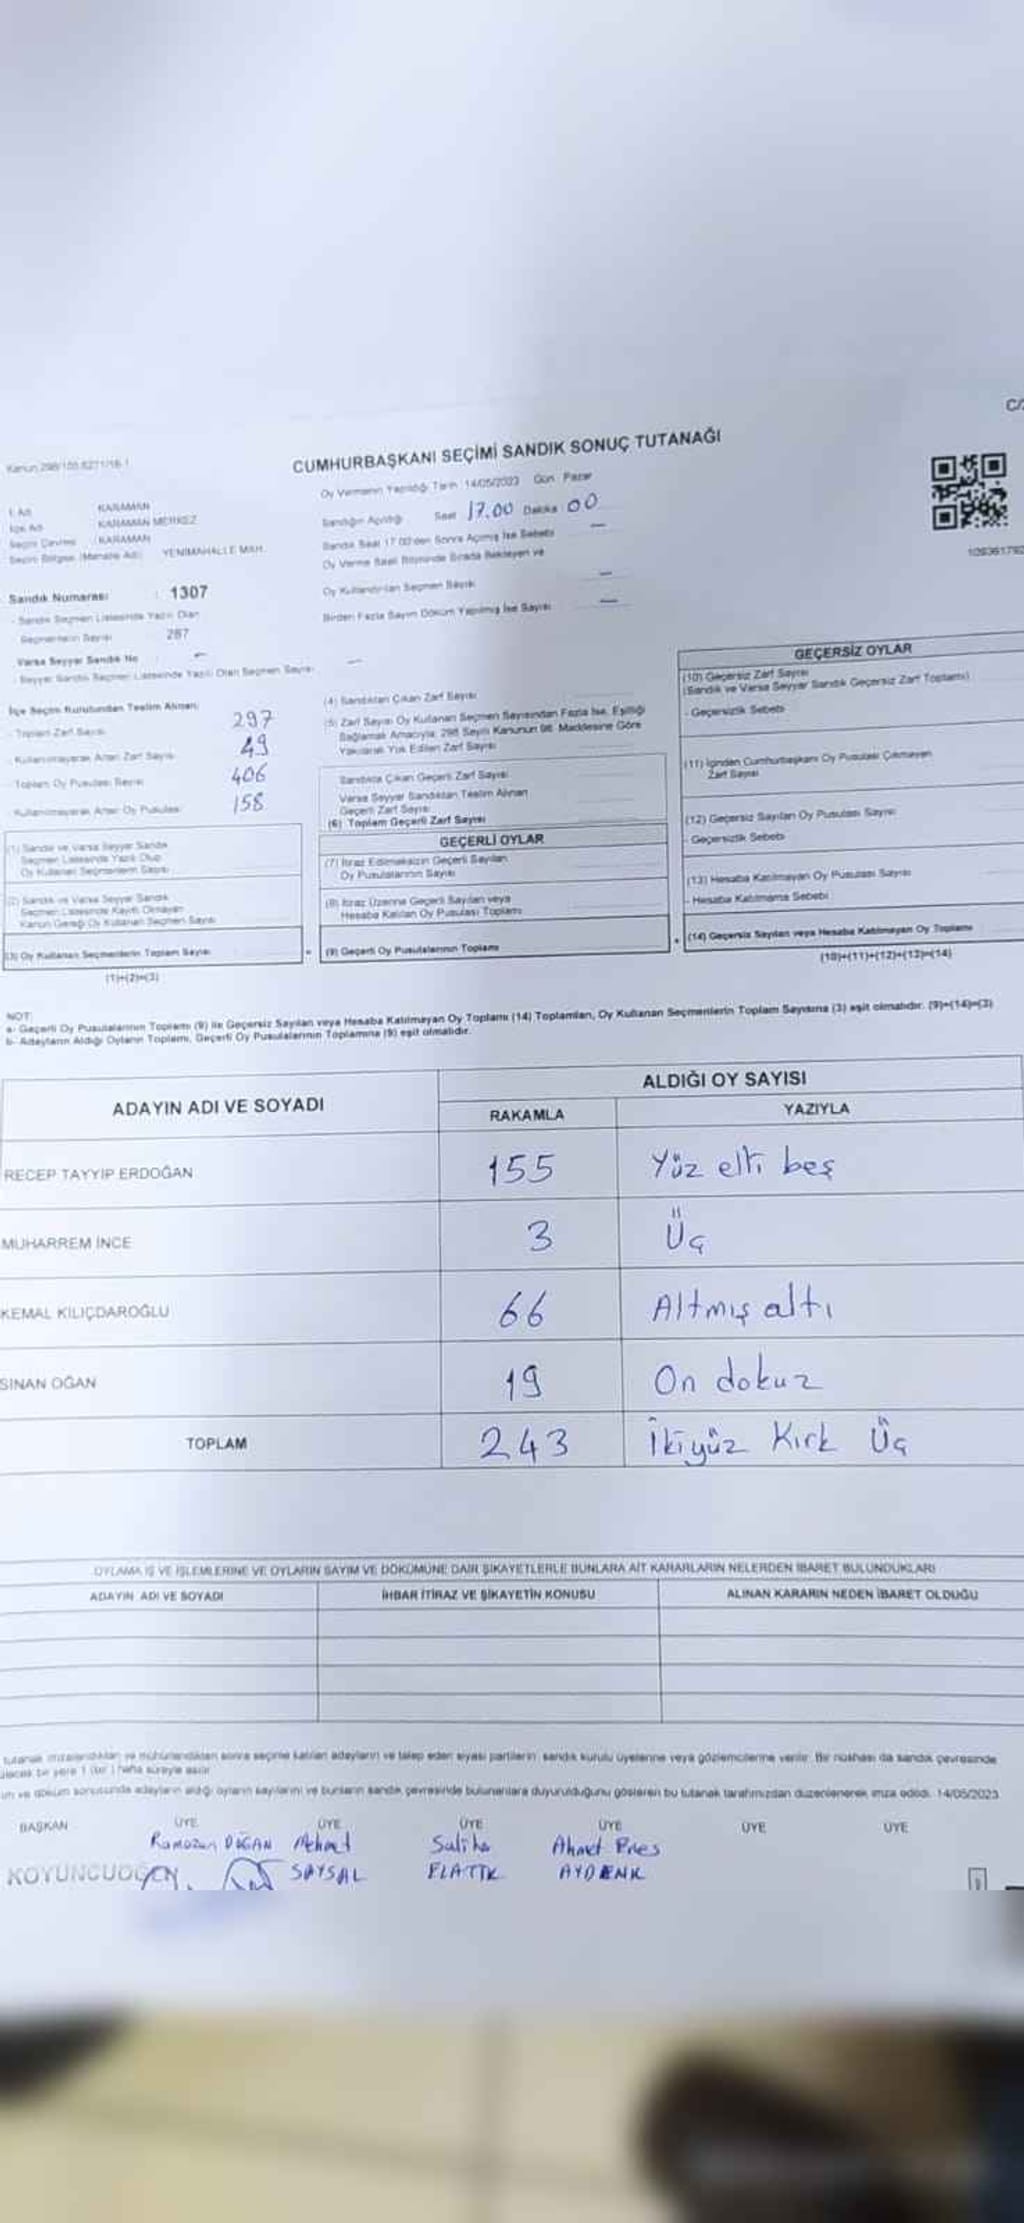 C/
Kanun 298/105 6271/16-1
CUMHURBAŞKANI SEÇİMİ SANDIK SONUÇ TUTANAĞI
İl Adı KARAMAN
İlçe Adı KARAMAN MERKEZ
Seçim Çevresi : KARAMAN
Seçim Bölgesi (Mahalle Adı) YENİMAHALLE MAH.
Sandık Numarası : 1307
- Sandık Seçmen Listesinde Yazılı Olan
Seçmenlerin Sayısı : 287
Varsa Seyyar Sandık No : -
- Seyyar Sandık Seçmen Listesinde Yazılı Olan Seçmen Sayısı —
Oy Vermenin Yapıldığı Tarih 14/05/2023 Gün Pazar
Sandığın Açıldığı Saat 17.00 Dakika 00
Sandık Saat 17.00'den Sonra Açılmış İse Sebebi —
Oy Verme Saati Bitiminde Sırada Bekleyen ve
Oy Kullandırılan Seçmen Sayısı —
Birden Fazla Sayım Döküm Yapılmış İse Sayısı —
İlçe Seçim Kurulundan Teslim Alınan:
- Toplam Zarf Sayısı 297
- Kullanılmayarak Artan Zarf Sayısı 49
- Toplam Oy Pusulası Sayısı 406
- Kullanılmayarak Artan Oy Pusulası 158
(1) Sandık ve Varsa Seyyar Sandık
Seçmen Listesinde Yazılı Olup
Oy Kullanan Seçmenlerin Sayısı
(2) Sandık ve Varsa Seyyar Sandık
Seçmen Listesinde Kayıtlı Olmayan
Kanun Gereği Oy Kullanan Seçmen Sayısı
(3) Oy Kullanan Seçmenlerin Toplam Sayısı
(1)+(2)=(3)
(4) Sandıktan Çıkan Zarf Sayısı
(5) Zarf Sayısı Oy Kullanan Seçmen Sayısından Fazla İse, Eşitliği
Sağlamak Amacıyla, 298 Sayılı Kanunun 98. Maddesine Göre
Yakılarak Yok Edilen Zarf Sayısı
Sandıkta Çıkan Geçerli Zarf Sayısı
Varsa Seyyar Sandıktan Teslim Alınan
Geçerli Zarf Sayısı
(6) Toplam Geçerli Zarf Sayısı
GEÇERLİ OYLAR
(7) İtiraz Edilmeksizin Geçerli Sayılan
Oy Pusulalarının Sayısı
(8) İtiraz Üzerine Geçerli Sayılan veya
Hesaba Katılan Oy Pusulası Toplamı
(9) Geçerli Oy Pusulalarının Toplamı
GEÇERSİZ OYLAR
(10) Geçersiz Zarf Sayısı
(Sandık ve Varsa Seyyar Sandık Geçersiz Zarf Toplamı)
- Geçersizlik Sebebi
(11) İçinden Cumhurbaşkanı Oy Pusulası Çıkmayan
Zarf Sayısı
(12) Geçersiz Sayılan Oy Pusulası Sayısı
- Geçersizlik Sebebi
(13) Hesaba Katılmayan Oy Pusulası Sayısı
- Hesaba Katılmama Sebebi
(14) Geçersiz Sayılan veya Hesaba Katılmayan Oy Toplamı
(10)+(11)+(12)+(13)=(14)
NOT:
a- Geçerli Oy Pusulalarının Toplamı (9) ile Geçersiz Sayılan veya Hesaba Katılmayan Oy Toplamı (14) Toplamları, Oy Kullanan Seçmenlerin Toplam Sayısına (3) eşit olmalıdır. (9)+(14)=(3)
b- Adayların Aldığı Oyların Toplamı, Geçerli Oy Pusulalarının Toplamına (9) eşit olmalıdır.
ADAYIN ADI VE SOYADI ALDIĞI OY SAYISI
RAKAMLA YAZIYLA
RECEP TAYYİP ERDOĞAN 155 Yüz elli beş
MUHARREM İNCE 3 Üç
KEMAL KILIÇDAROĞLU 66 Altmış altı
SİNAN OĞAN 19 On dokuz
TOPLAM 243 İkiyüz Kırk Üç
OYLAMA İŞ VE İŞLEMLERİNE VE OYLARIN SAYIM VE DÖKÜMÜNE DAİR ŞİKAYETLERLE BUNLARA AİT KARARLARIN NELERDEN İBARET BULUNDUKLARI
ADAYIN ADI VE SOYADI İHBAR İTİRAZ VE ŞİKAYETİN KONUSU ALINAN KARARIN NEDEN İBARET OLDUĞU
tutanak imzalandıktan ve mühürlendikten sonra seçime katılan adayların ve talep eden siyasi partilerin sandık kurulu üyelerine veya gözlemcilerine verilir. Bir nüshası da sandık çevresinde
bir yere 1 (bir) hafta süreyle asılır.
ve döküm sonucunda adayların aldığı oyların sayılarını ve bunların sandık çevresinde bulunanlara duyurulduğunu gösteren bu tutanak tarafımızdan düzenlenerek imza edildi. 14/05/2023
BAŞKAN ÜYE ÜYE ÜYE ÜYE ÜYE ÜYE
Ramazan DOĞAN Mehmet Saliha Ahmet Enes
SAYSAL ELATİK AYDENK